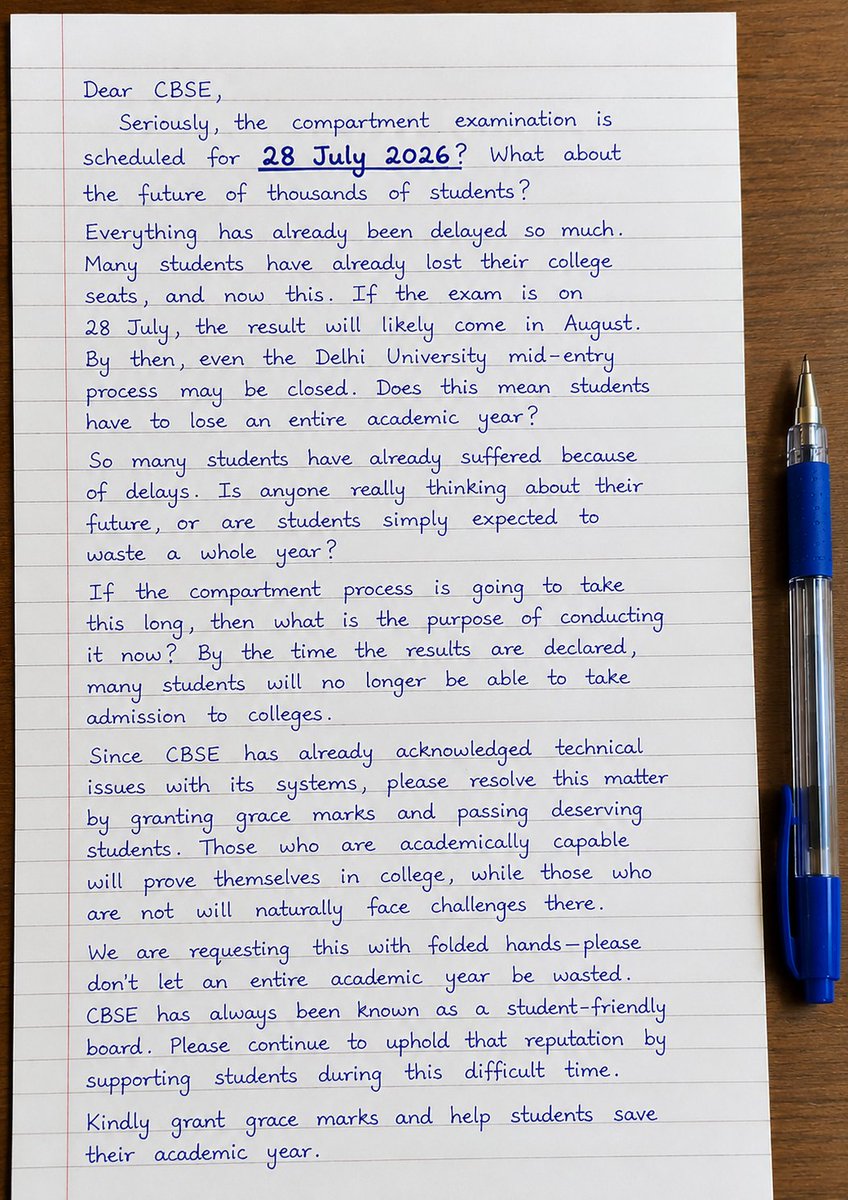 Dear CBSE,
Seriously, the compartment examination is
scheduled for 28 July 2026? What about
the future of thousands of students?
Everything has already been delayed so much.
Many students have already lost their college
seats, and now this. If the exam is on
28 July, the result will likely come in August.
By then, even the Delhi University mid-entry
process may be closed. Does this mean students
have to lose an entire academic year?
So many students have already suffered because
of delays. Is anyone really thinking about their
future, or are students simply expected to
waste a whole year?
If the compartment process is going to take
this long, then what is the purpose of conducting
it now? By the time the results are declared,
many students will no longer be able to take
admission to colleges.
Since CBSE has already acknowledged technical
issues with its systems, please resolve this matter
by granting grace marks and passing deserving
students. Those who are academically capable
will prove themselves in college, while those who
are not will naturally face challenges there.
We are requesting this with folded hands—please
don't let an entire academic year be wasted.
CBSE has always been known as a student-friendly
board. Please continue to uphold that reputation by
supporting students during this difficult time.
Kindly grant grace marks and help students save
their academic year.